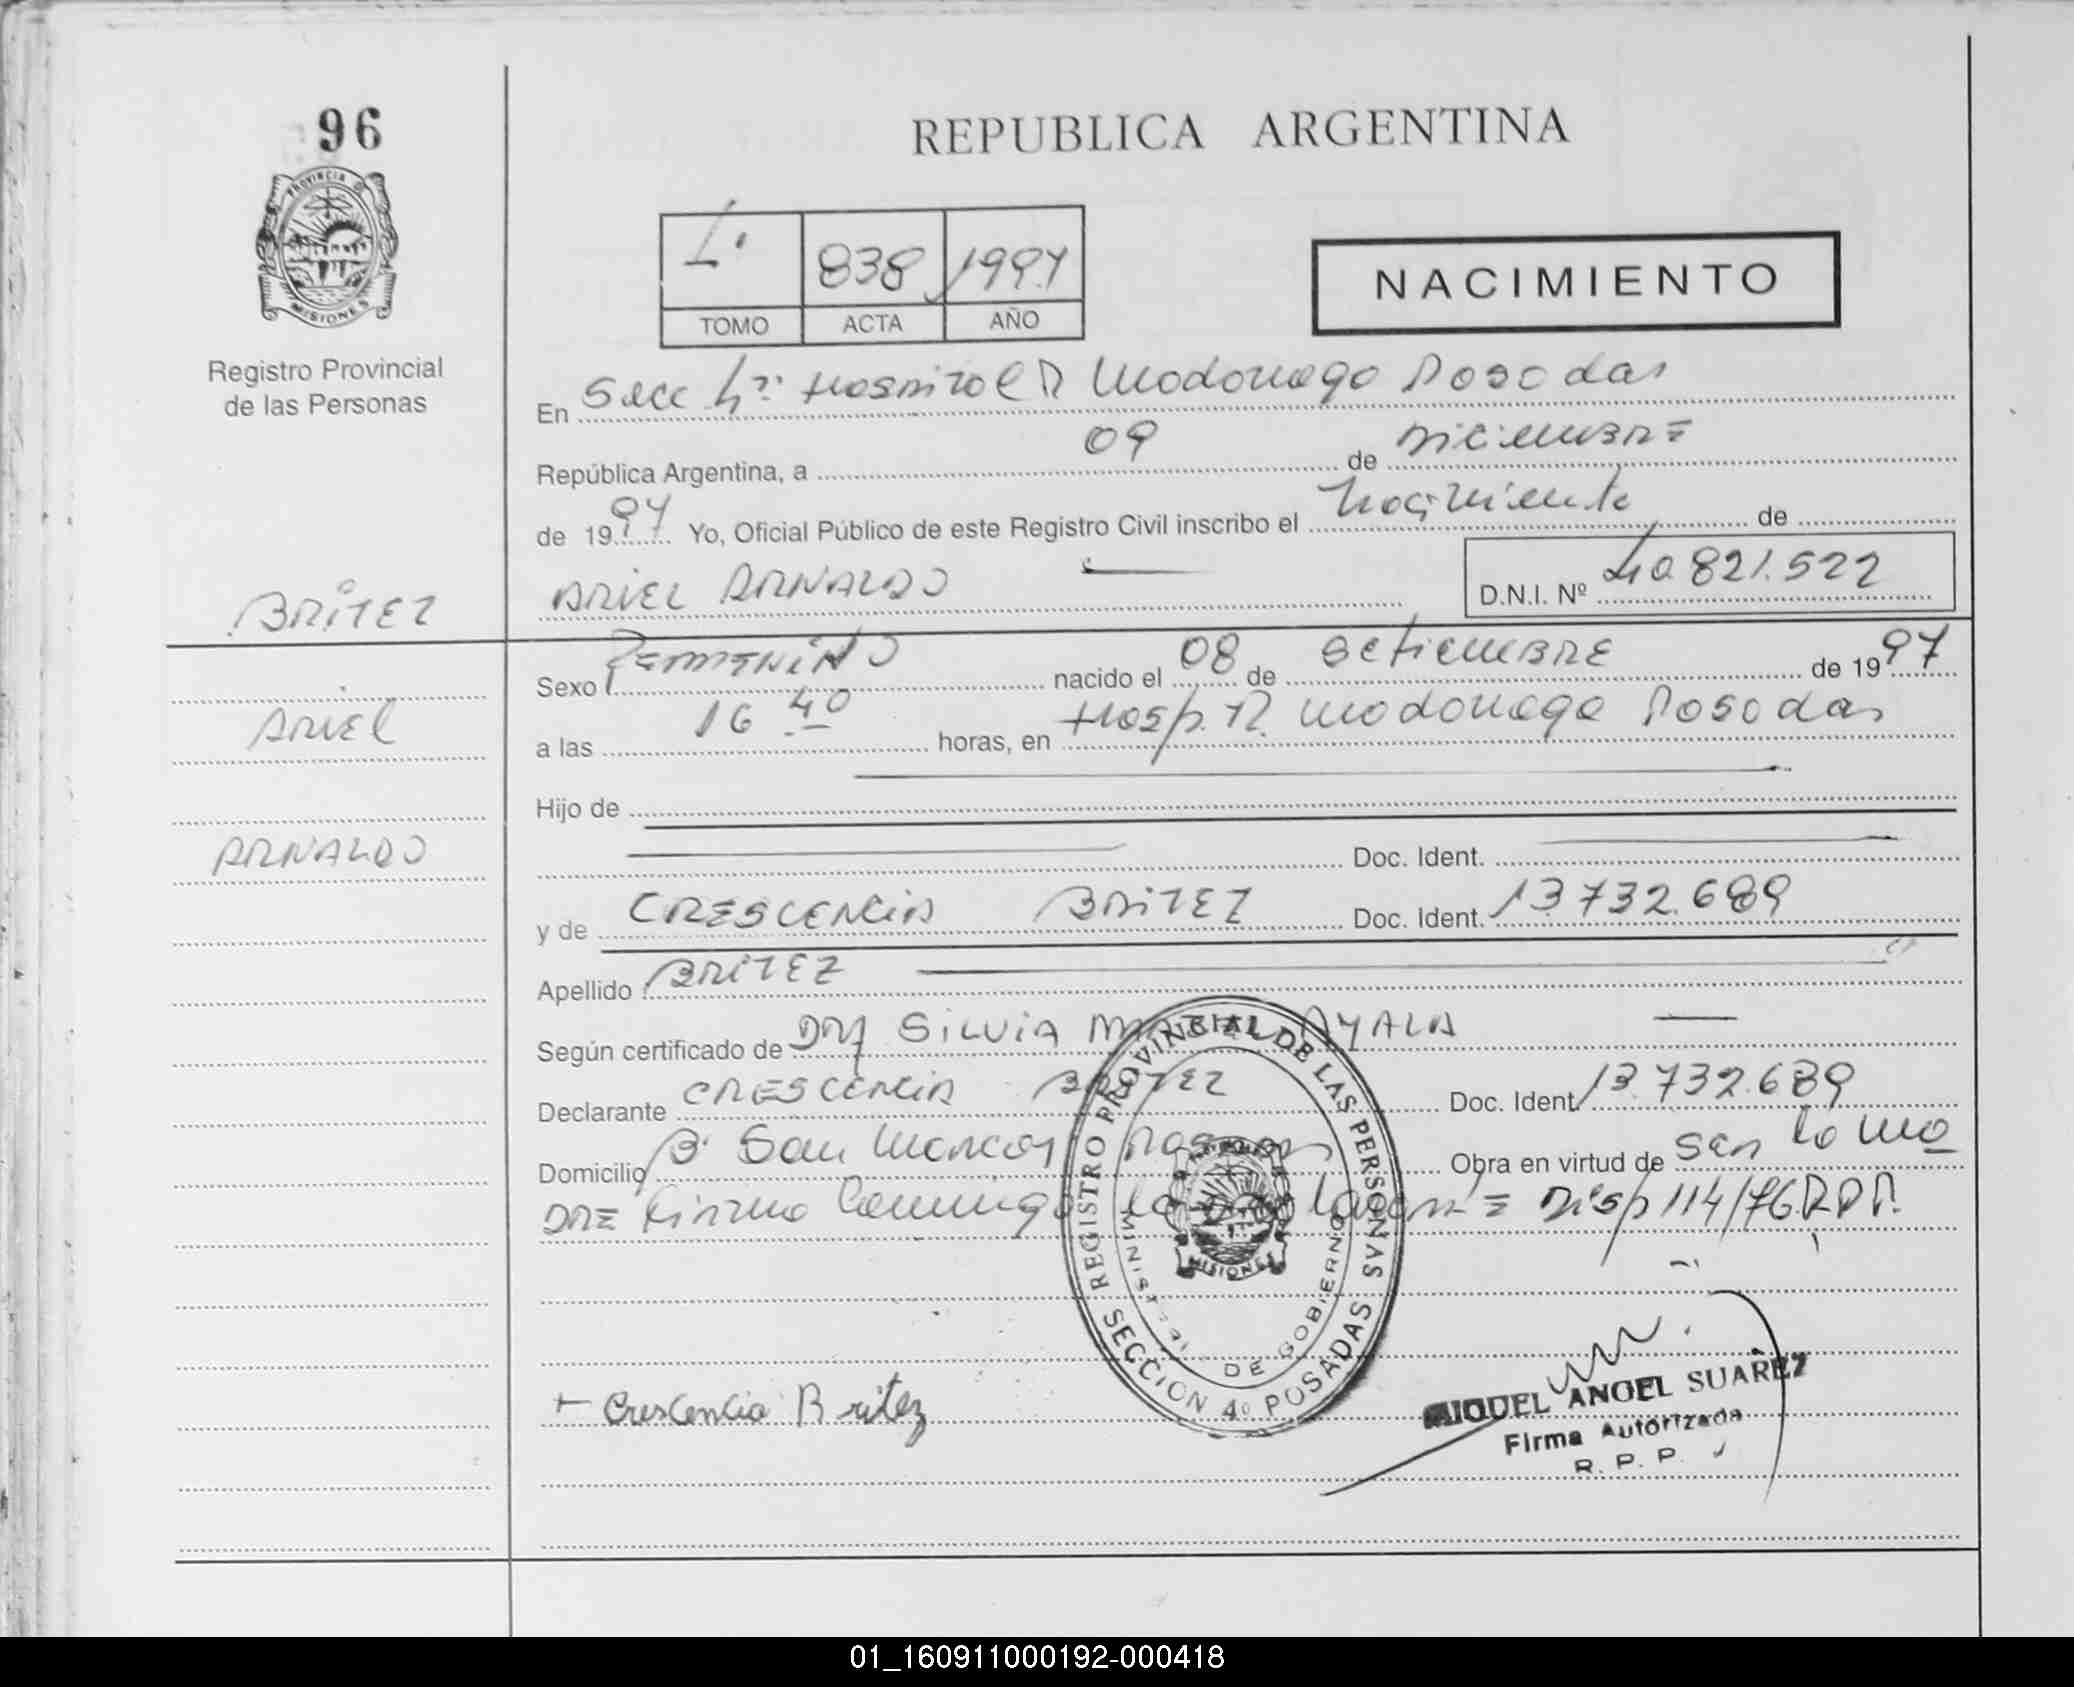 96
PROVINCIA DE
MISIONES
Registro Provincial
de las Personas
REPUBLICA ARGENTINA
838 1997
TOMO ACTA AÑO
NACIMIENTO
En Secc 4ª Hospital R Madariaga Posadas
República Argentina, a 09 de Diciembre
de 1997 Yo, Oficial Público de este Registro Civil inscribo el Nacimiento de
ARIEL ARNALDO
D.N.I. Nº 40.821.522
BRITEZ
ARIEL
ARNALDO
Sexo FEMENINO nacido el 08 de Setiembre de 1997
a las 16 40 horas, en Hosp. R. Madariaga Posadas
Hijo de
Doc. Ident.
y de CRESCENCIA BRITEZ Doc. Ident. 13.732.689
Apellido BRITEZ
Según certificado de SILVIA AYALA
Declarante CRESCENCIA BRITEZ Doc. Ident. 13.732.689
Domicilio Bº San Marcos Obra en virtud de
Disp 114/76 R.P.P.
REGISTRO PROVINCIAL DE LAS PERSONAS
SECCION 4º POSADAS
MINISTERIO DE GOBIERNO
MISIONES
Crescencia Britez
MIGUEL ANGEL SUAREZ
Firma Autorizada
R. P. P.
01_160911000192-000418